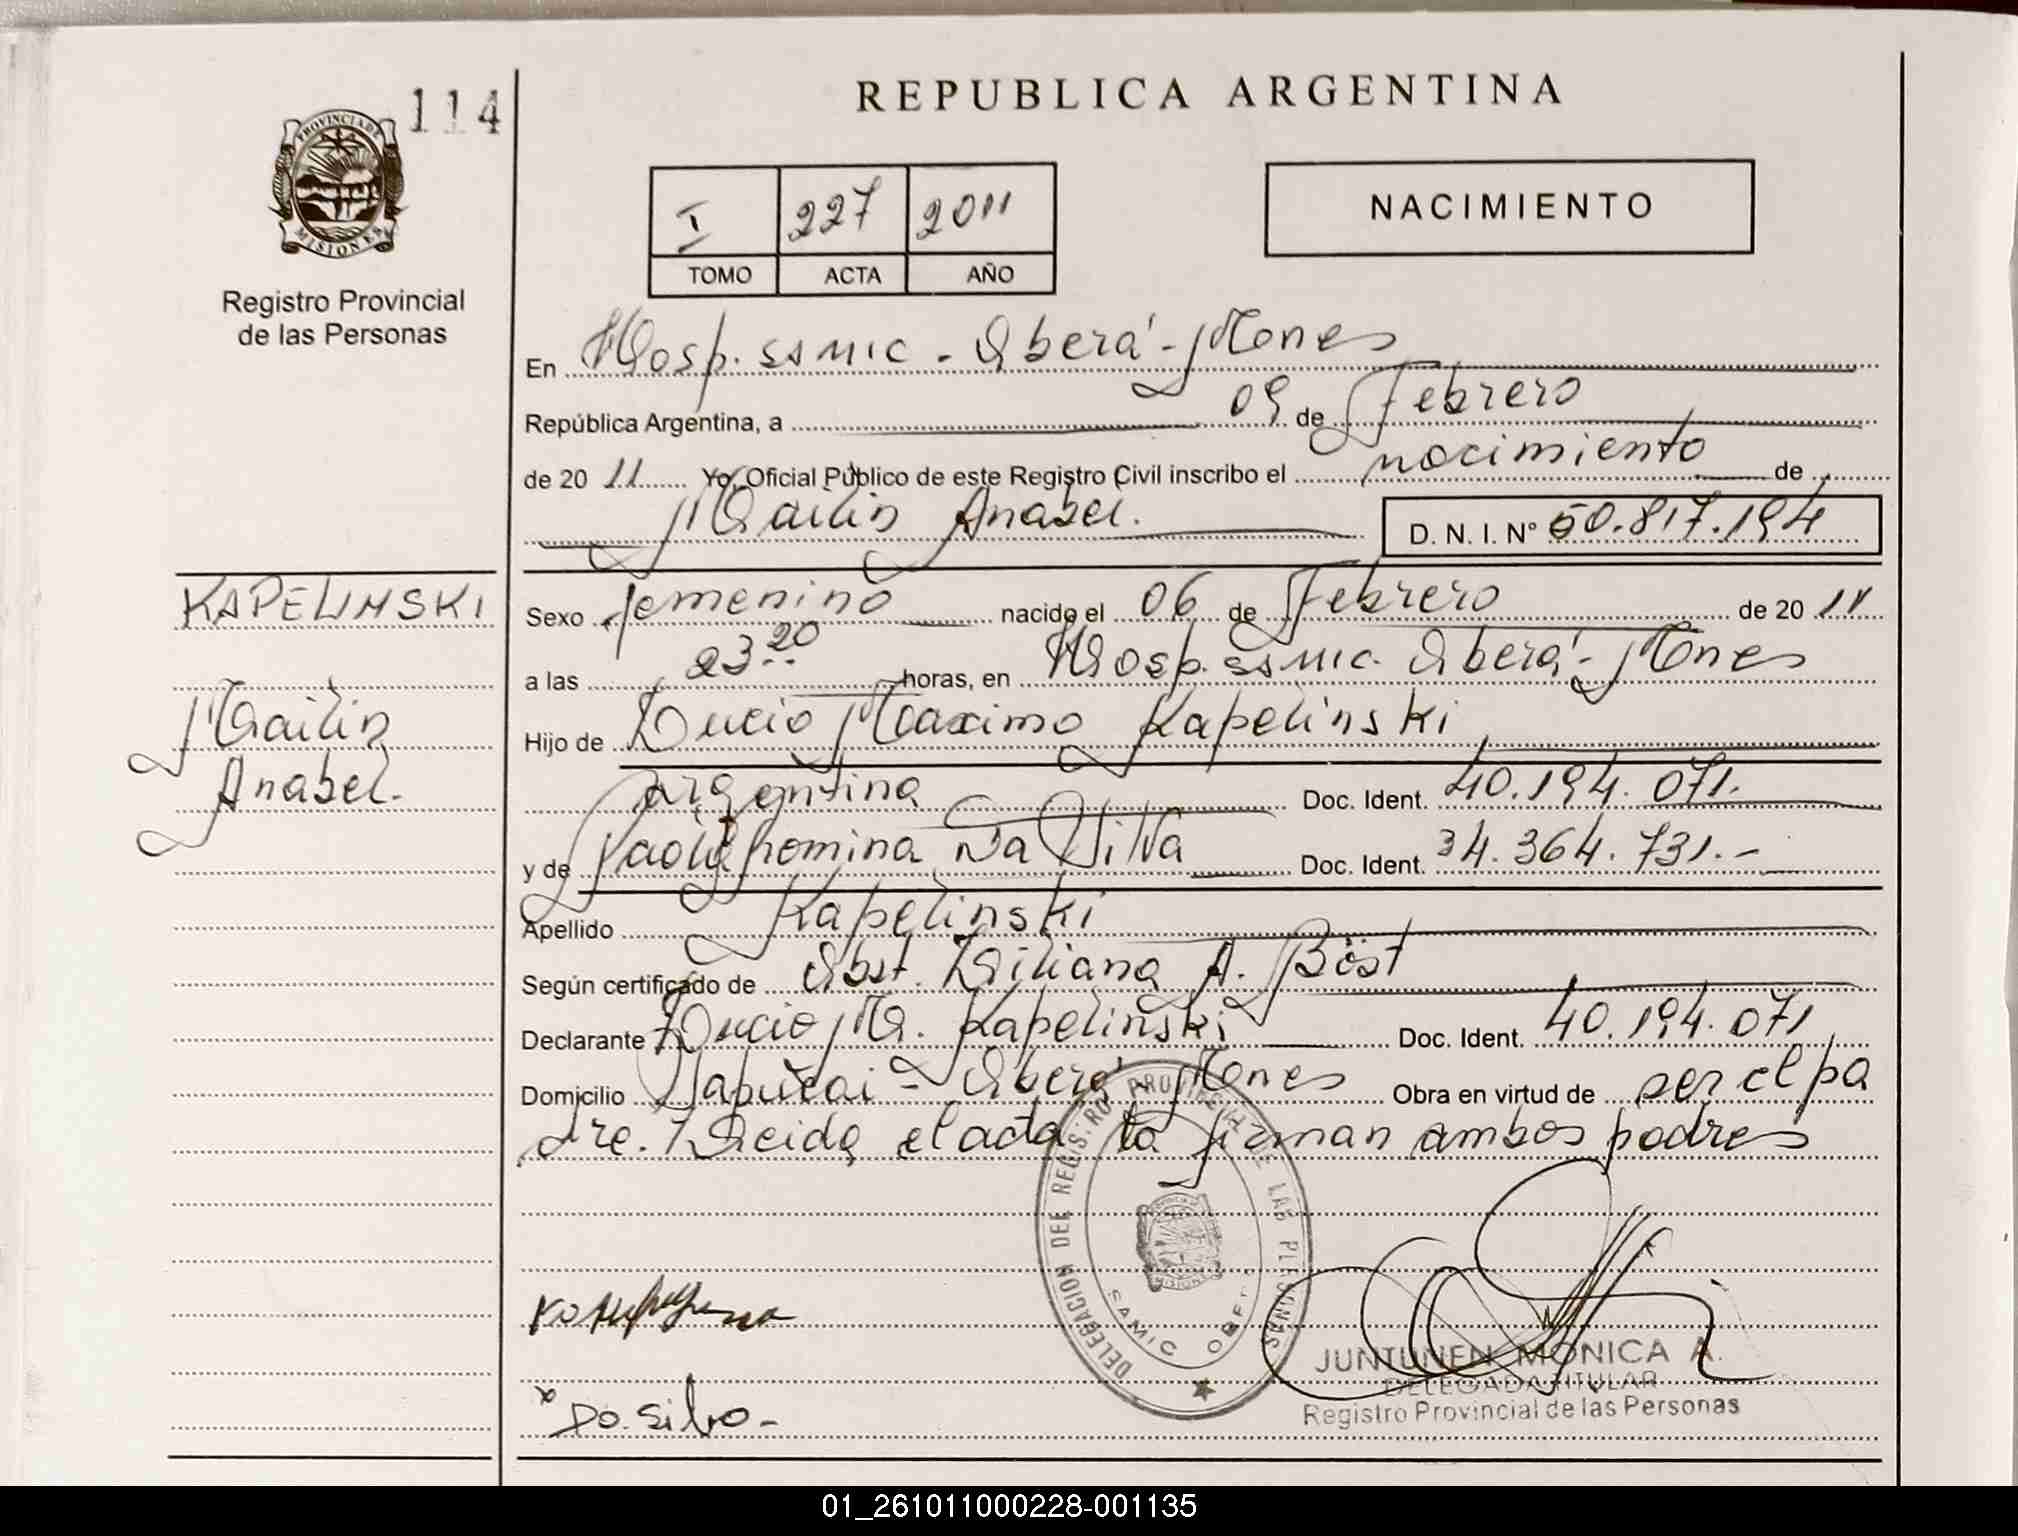 114
REPUBLICA ARGENTINA
PROVINCIA DE
MISIONES
Registro Provincial
de las Personas
I 227 2011
TOMO ACTA AÑO
NACIMIENTO
En Hosp. SAMIC - Oberá - Mones
República Argentina, a 09 de Febrero
de 2011 Yo, Oficial Público de este Registro Civil inscribo el nacimiento de
Mailin Anabel. D. N. I. N° 50.817.194
KAPELINSKI
Mailin
Anabel.
Sexo femenino nacido el 06 de Febrero de 2011
a las 23.20 horas, en Hosp. SAMIC. Oberá - Mones
Hijo de Lucio Maximo Kapelinski
argentina Doc. Ident. 40.194.071.
y de Paola Romina Da Silva Doc. Ident. 34.364.731.-
Apellido Kapelinski
Según certificado de Obst. Liliana A. Böst
Declarante Lucio M. Kapelinski Doc. Ident. 40.194.071
Domicilio Tapucai - Oberá - Mones Obra en virtud de ser el pa
dre. Leida el acta la firman ambos padres
DELEGACION DEL REGISTRO PROVINCIAL DE LAS PERSONAS
MISIONES
SAMIC OBERA
Da Silva -
JUNTUNEN MONICA A.
DELEGADA TITULAR
Registro Provincial de las Personas
01_261011000228-001135